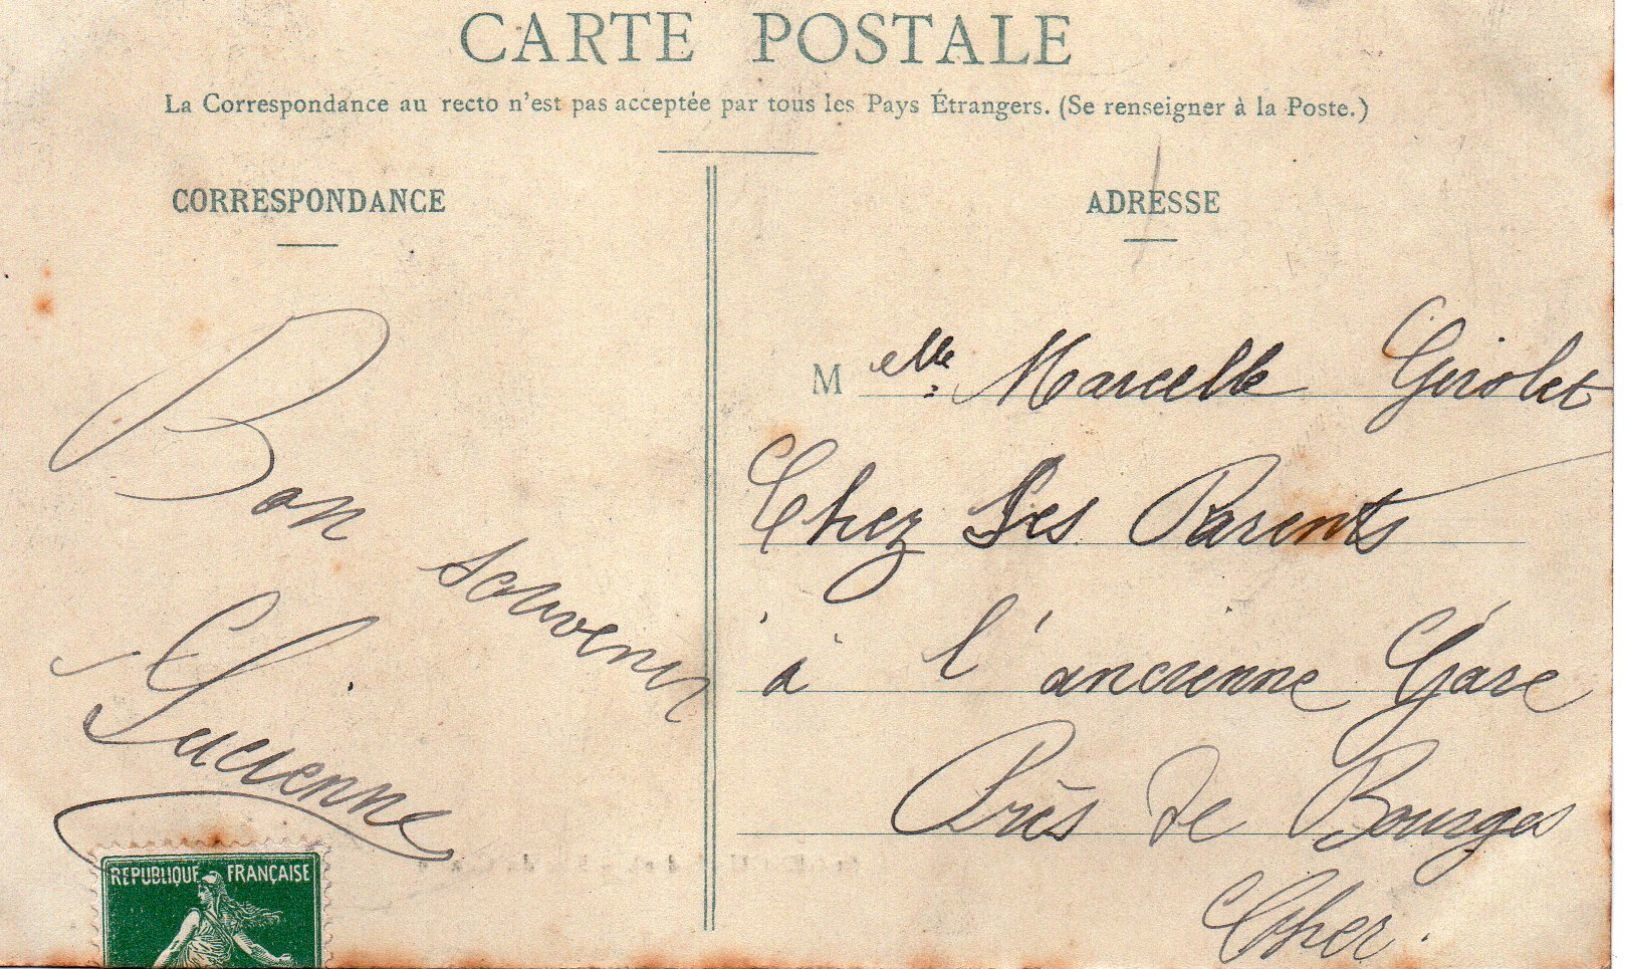 CARTE POSTALE
La Correspondance au recto n'est pas acceptée par tous les Pays Étrangers. (Se renseigner à la Poste.)
CORRESPONDANCE
Bon souvenir
Lucienne
REPUBLIQUE FRANÇAISE
ADRESSE
Melle Marcelle Girolet
Chez Ses Parents
à l'ancienne Gare
Près de Bourges
Cher.